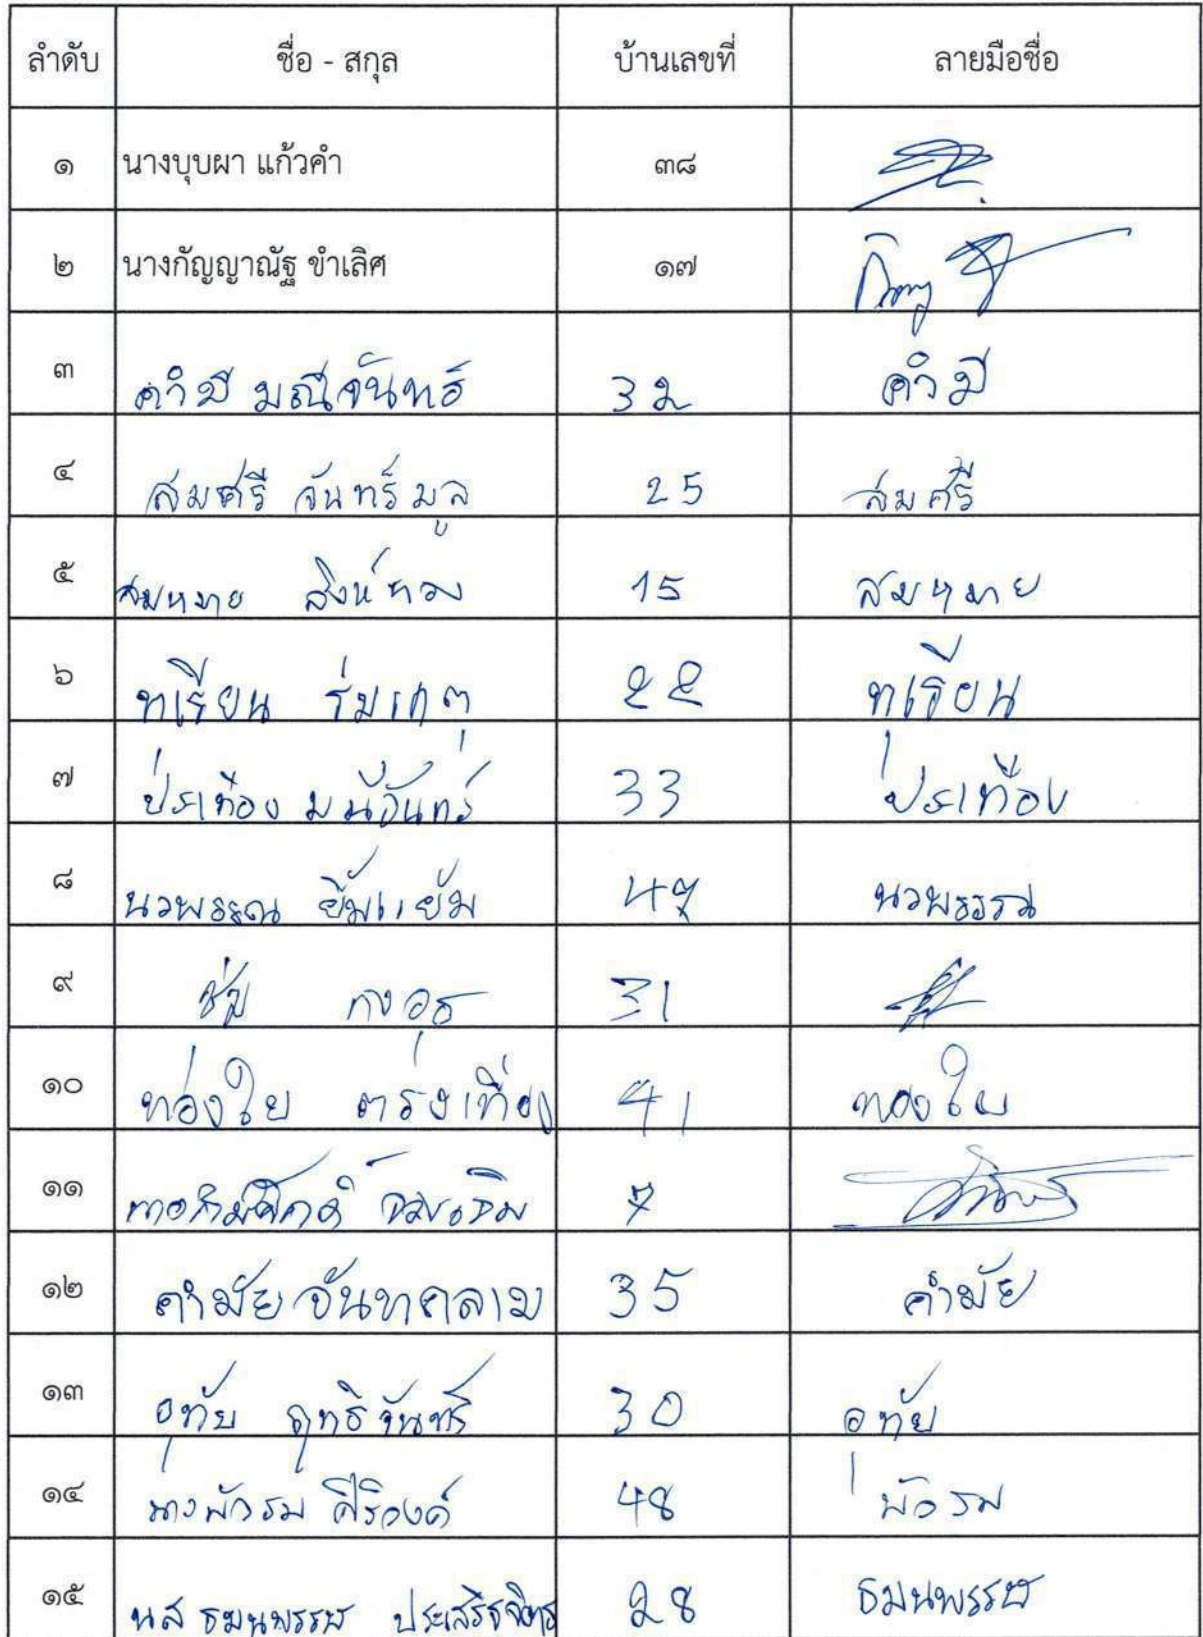 ลำดับ ชื่อ - สกุล บ้านเลขที่ ลายมือชื่อ
๑ นางบุบผา แก้วคำ ๓๘
๒ นางกัญญาณัฐ ขำเลิศ ๑๗
๓ คำมี มณีจันทร์ 32 คำมี
๔ สมศรี จันทร์มูล 25 สมศรี
๕ สมหมาย สิงห์ทอง 15 สมหมาย
๖ ทเรียน ร่มเกตุ 22 ทเรียน
๗ ประเทือง มนีจันทร์ 33 ประเทือง
๘ นวพรรณ ยิ้มแย้ม 47 นวพรรณ
๙ 31
๑๐ ทองใบ 41 ทองใบ
๑๑ 7
๑๒ คำมัย 35 คำมัย
๑๓ อุทัย ฤทธิจันทร์ 30 อุทัย
๑๔ นาง 48
๑๕ นส ธมนพรรษ 28 ธมนพรรษ